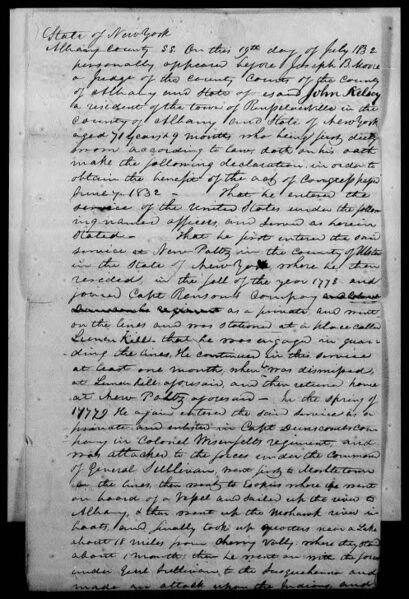 State of New York
Albany County SS. On this 19th day of July 1832
personally appeared before Joseph B. Moore
a Judge of the County Courts of the County
of Albany and State of John Kelsey
a resident of the town of Renssselaerville in the
County of Albany and State of New York
aged 71 years 9 months who being first duly
sworn according to law, doth on his oath
make the following declaration in order to
obtain the benefit of the act of Congress passed
June 7, 1832 – That he entered the
service of the United States under the follow
ing named officers and served as herein
stated – That he first entered the said
service at New Paltz in the County of Ulster
in the State of New York where he then
resided, in the fall of the year 1778 and
joined Capt Ransoms Company
as a private and went
on the lines and was stationed at a place called
Kill that he was engaged in guar
ding the lines. He continued in this service
at least one month, when was dismissed
at aforesaid and then returned home
at New Paltz aforesaid – In the Spring of
1779 He again entered the said service as a
private and enlisted in Capt com
pany in Colonel regiment, and
was attached to the forces under the command
of General Sullivan, went first to
on the lines, then went to Esopus where he went
on board of a Vessel and sailed up the river to
Albany, & then went up the Mohawk river in
boats, and finally took up quarters near a Lake
about 18 miles from Cherry Vally where they staid
about 1 month, then he went on with the forces
under Genl Sullivan to the Susquehanna and
made an attack upon the Indians, and